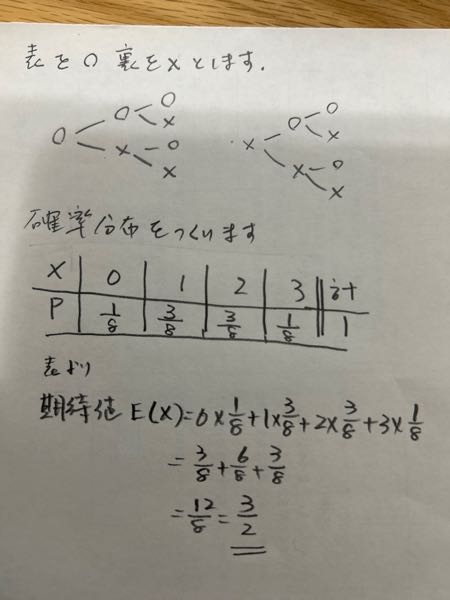 表を○ 裏を×とします.
○ ○ ○
×
× ○
×
× ○ ○
×
× ○
×
確率分布をつくります
X 0 1 2 3 計
P 1/8 3/8 3/8 1/8 1
表より
期待値 E(X)=0×1/8+1×3/8+2×3/8+3×1/8
=3/8+6/8+3/8
=12/8=3/2